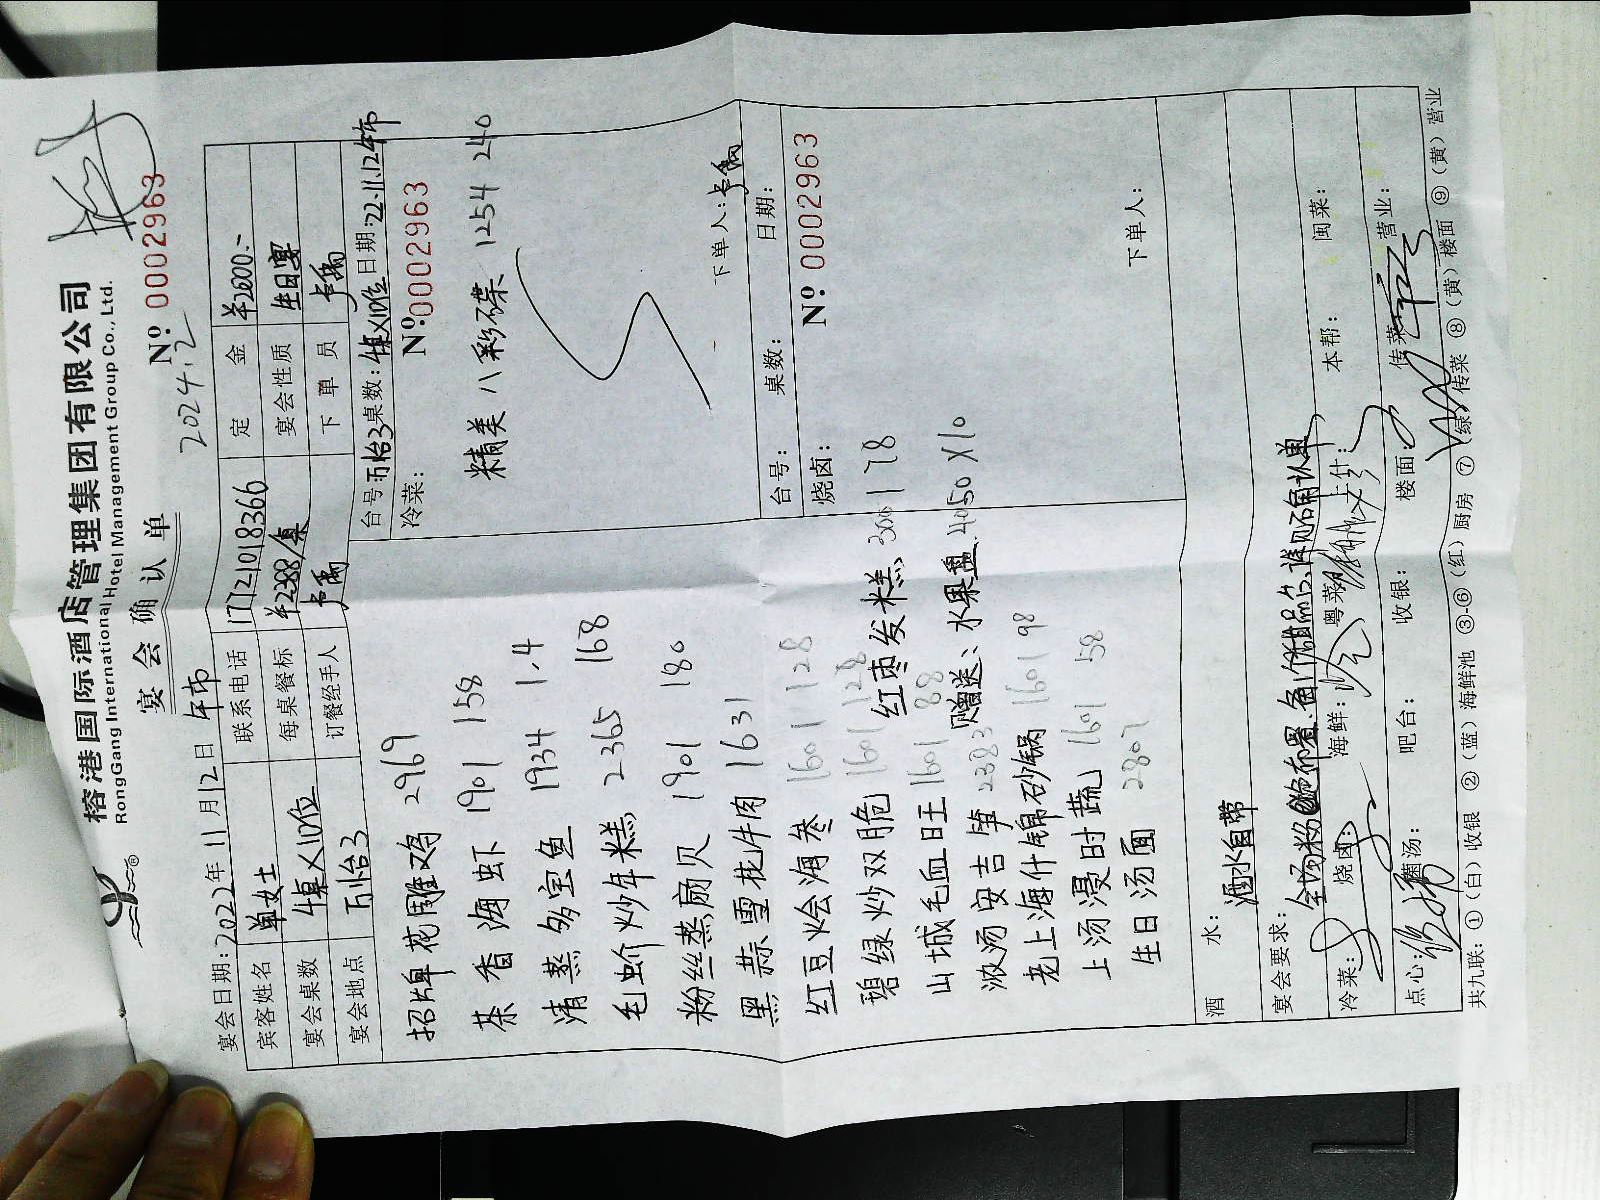 榕港国际酒店管理集团有限公司
RongGang International Hotel Management Group Co., Ltd.
宴会确认单
Nº: 0002963
2024.2
宴会日期:2022年11月12日 午市
宾客姓名 单女士 联系电话 17721018366 定金 ¥2000.-
宴会桌数 4桌×10位 每桌餐标 ¥2388/桌 宴会性质 生日宴
宴会地点 万怡3 订餐经手人 下单员
台号:万怡3 桌数:4桌×10位 日期:22.11.12午市
冷菜: Nº:0002963
精美八彩碟 1254 240
下单人:
招牌花雕鸡 2969
茶香海虾 1901 158
清蒸多宝鱼 1934 1.4
毛蚧炒年糕 2365 168
粉丝蒸扇贝 1901 180
黑蒜雪花牛肉 1631
红豆烩海参 1601 128
碧绿炒双脆 1601 128
山城毛血旺 1601 88
浓汤安吉笋 2383
老上海什锦砂锅 1601 98
上汤浸时蔬 1601 58
生日汤面 2807
红枣发糕 3001 78
赠送:水果盘 4050 ×10
台号: 桌数: 日期:
烧卤: Nº: 0002963
下单人:
酒水: 酒水自带
宴会要求:
冷菜: 烧卤: 海鲜: 粤菜: 上什: 本帮: 闽菜:
点心: 炖汤: 吧台: 收银: 楼面: 传菜: 营业:
共九联:①(白)收银 ②(蓝)海鲜池 ③-⑥(红)厨房 ⑦(绿)传菜 ⑧(黄)楼面 ⑨(黄)营业